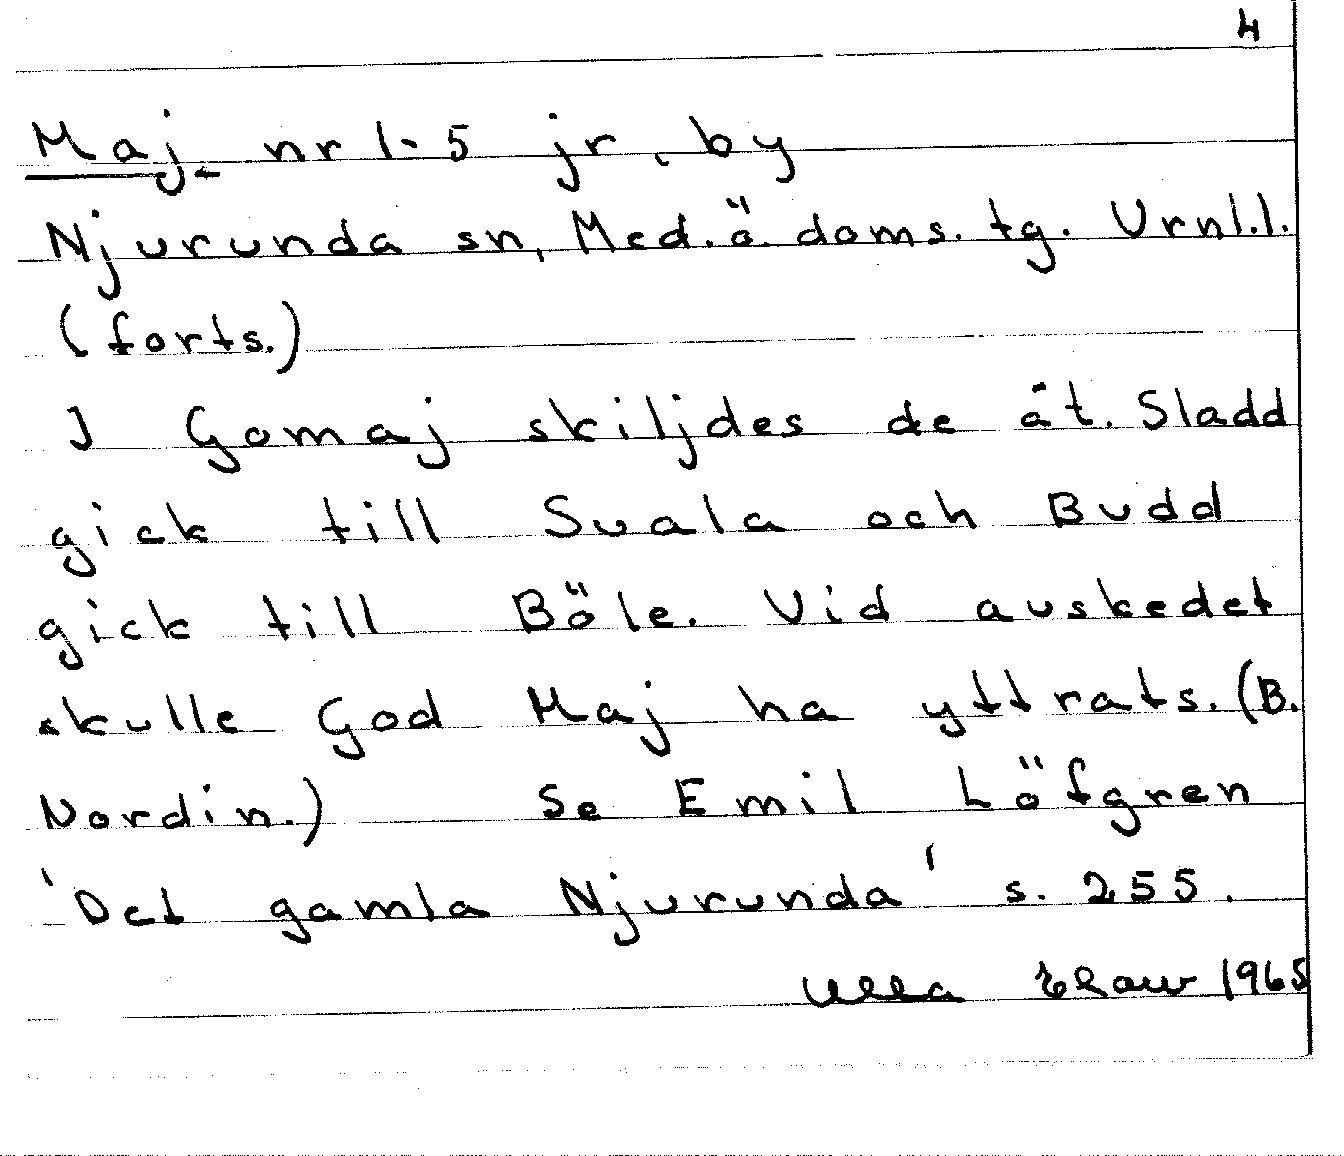 4
Maj. nr 1-5 jr. by
Njurunda sn, Med. ö. doms. tg. Vrnl.l.
(forts.)
I Gomaj skiljdes de åt. Sladd
gick till Svala och Budd
gick till Böle. Vid avskedet
skulle God Maj ha yttrats. (B.
Nordin.) Se Emil Löfgren
'Det gamla Njurunda' s. 255.
Ulla 1965